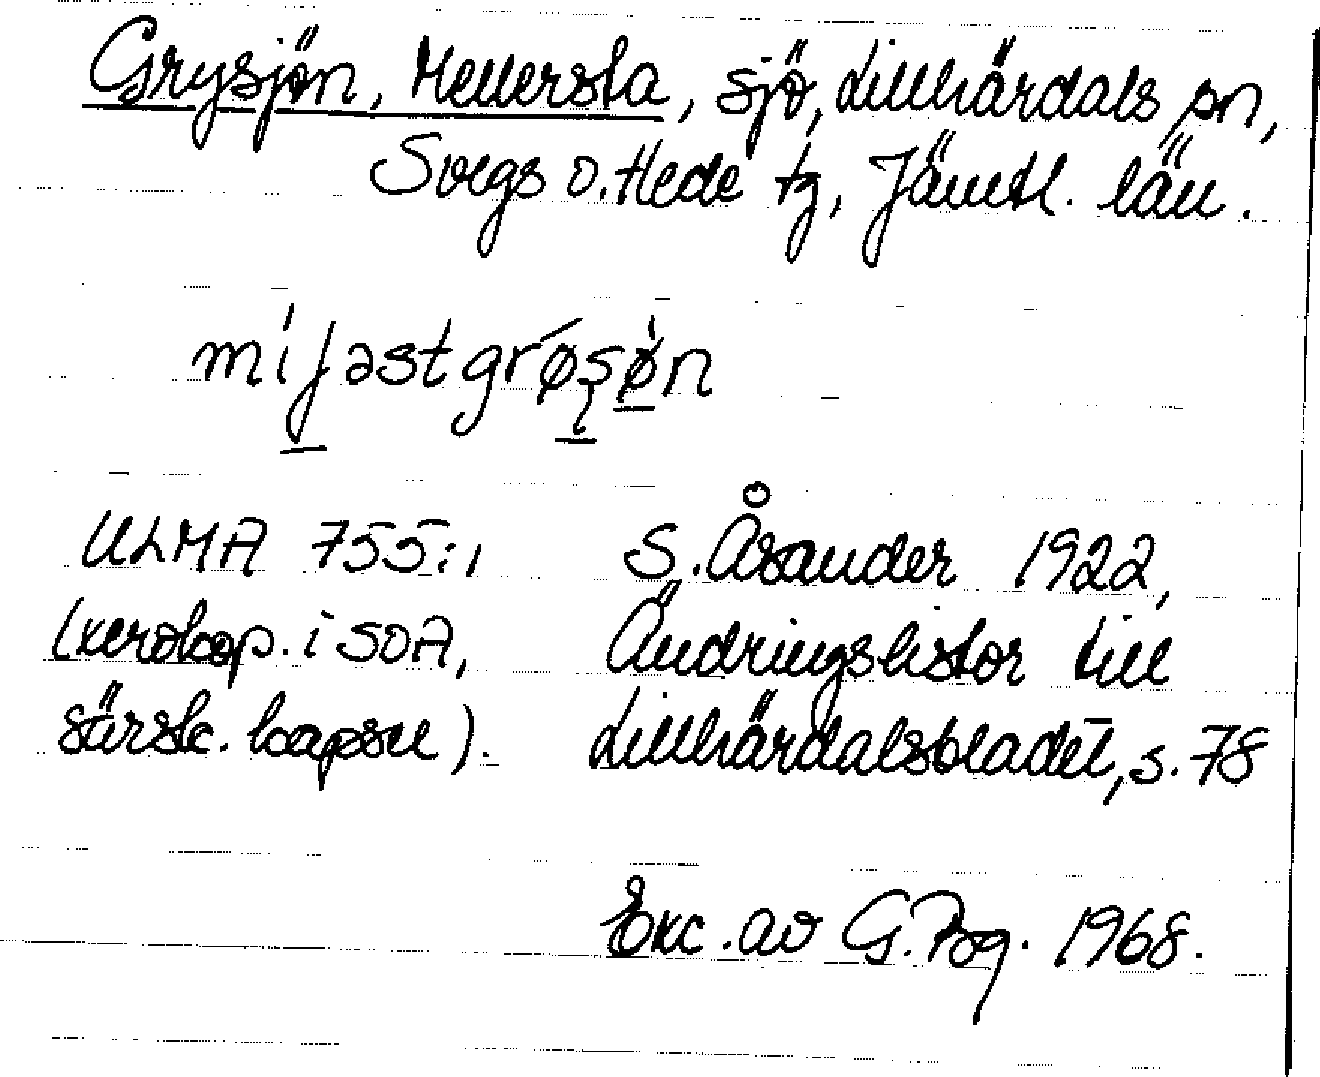 Grysjön, Mellersta, sjö, Lillhärdals sn,
Svegs o. Hede tg, Jämtl. län.
mijəst grøsøn
ULMA 755:1 S. Åsander 1922,
(xerokop. i SOA, Ändringslistor till
särsk. kapsel). Lillhärdalsbladet, s. 78
Exc. av G. 1968.